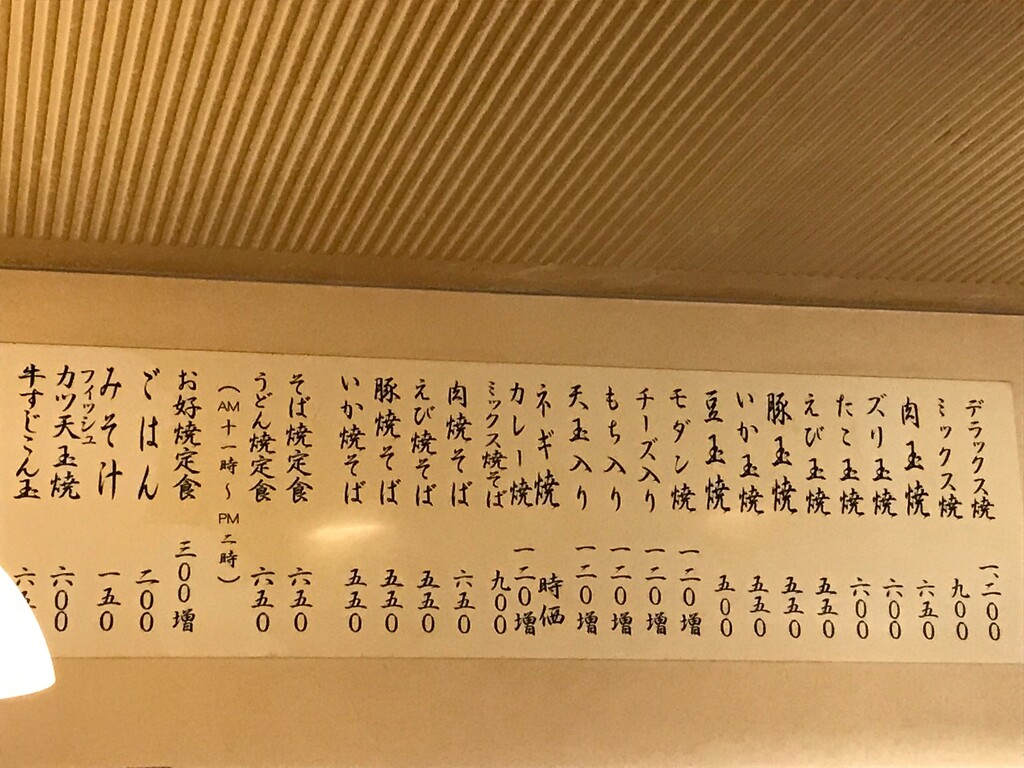 デラックス焼 一、二〇〇
ミックス焼 九〇〇
肉玉焼 六五〇
ズリ玉焼 六〇〇
たこ玉焼 六〇〇
えび玉焼 五五〇
豚玉焼 五五〇
いか玉焼 五五〇
豆玉焼 五〇〇
モダン焼 一二〇増
チーズ入り 一二〇増
もち入り 一二〇増
天玉入り 一二〇増
ネギ焼 時価
カレー焼 一二〇増
ミックス焼そば 九〇〇
肉焼そば 六五〇
えび焼そば 五五〇
豚焼そば 五五〇
いか焼そば 五五〇
そば焼定食 六五〇
うどん焼定食 六五〇
(AM十一時〜PM二時)
お好焼定食 三〇〇増
ごはん 二〇〇
みそ汁 一五〇
フィッシュカツ天玉焼 六〇〇
牛すじこん玉 六五